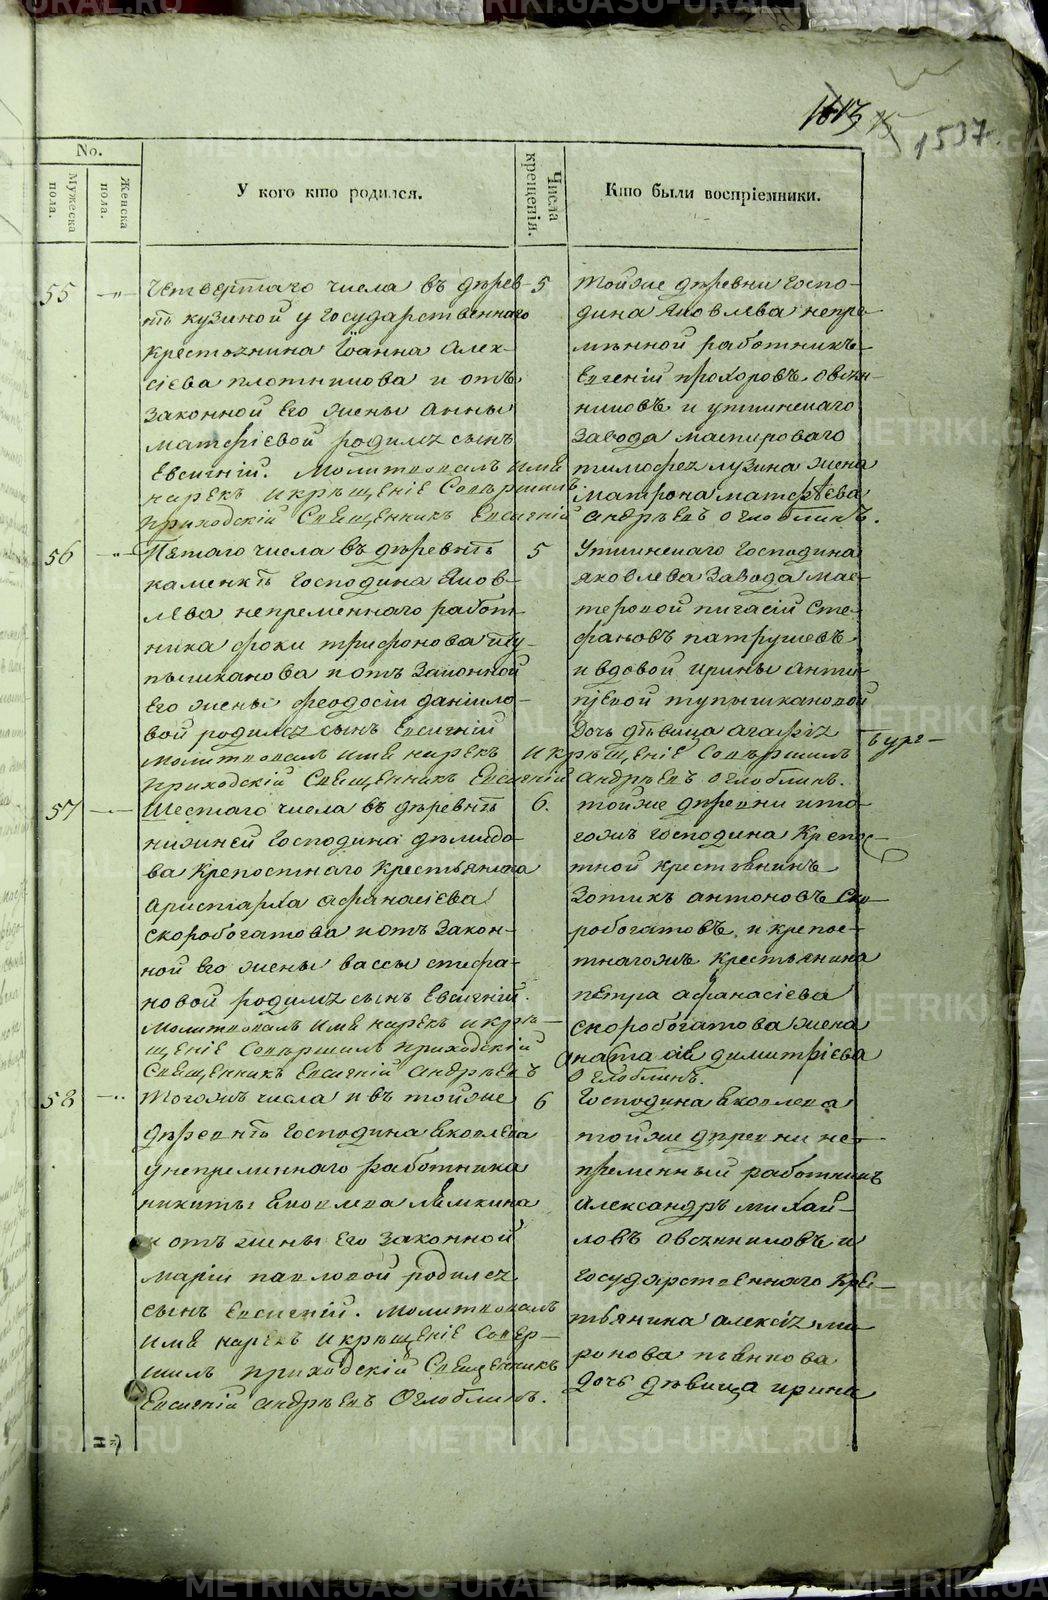 1613 15 1537.
No.
Мужеска пола.
Женска пола.
У кого кто родился.
Числа крещенія.
Кто были воспріемники.
55 — " —
Четвертаго числа въ дерев-
нѣ кузиной у Государственнаго
крестьянина Іоанна Алек-
сіева плотникова и отъ
законной его жены Анны
матфіевой родился сынъ
Евсигній. Молитвовалъ имя
нарекъ и крещеніе совершилъ
приходскій Священникъ Евсигній
5
тойже деревни Госпо-
дина Яковлева непре-
мѣнной работникъ
Евгеній прохоровъ овчин-
никовъ и уткинскаго
завода мастероваго
тимофея лузина жена
матрона матфѣева
андреевъ оглоблинъ.
56 — " —
Пятаго числа въ деревнѣ
каменкѣ Господина Яков-
лева непременнаго работ-
ника фоки трифонова
и отъ законной
его жены феодосіи даніило-
вой родился сынъ Евсигній
молитвовалъ имя нарекъ
приходскій Священникъ Евсигній
5
Уткинскаго Господина
яковлева завода мас-
теровой пигасій сте-
фановъ патрушевъ
и вдовой ирины анти-
піевой
дочь дѣвица агафія
и крещеніе совершилъ
андреевъ оглоблинъ.
57
Шестаго числа въ деревнѣ
нижней Господина демидо-
ва крепостнаго крестьянина
аристарха афанасіева
скоробогатова и отъ закон-
ной его жены вассы стефа-
новой родился сынъ Евсигній.
молитвовалъ имя нарекъ и кре-
щеніе совершилъ приходскій
священникъ Евсигній андреевъ
6.
тойже деревни итого-
гожъ господина крепос-
тной крестьянинъ
Зотикъ антоновъ ско-
робогатовъ, и крепос-
тнагожъ крестьянина
петра афанасіева
скоробогатова жена
димитріева
оглоблинъ.
58
Тогожъ числа и въ тойже
деревнѣ Господина яковлева
у непременнаго работника
никиты яковлева лямкина
и отъ жены его законной
маріи павловой родился
сынъ евсигній. молитвовалъ
имя нарекъ и крещеніе совер-
шилъ приходскій священникъ
Евсигній андреевъ Оглоблинъ.
6
Господина яковлева
тойже деревни не-
пременный работникъ
Александръ михай-
ловъ овчинниковъ и
государственнаго кре-
тьянина алексія ми-
ронова пѣнкова
дочь дѣвица ирина
METRIKI.GASO-URAL.RU